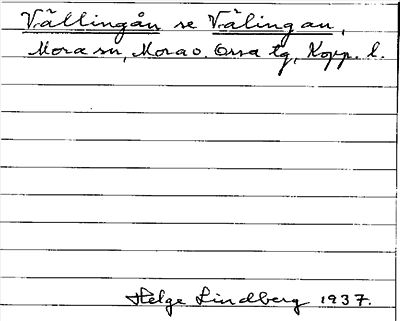 Vällingån se Välingan,
Mora sn, Mora o. Orsa tg, Kopp. l.
Helge Lindberg 1937.